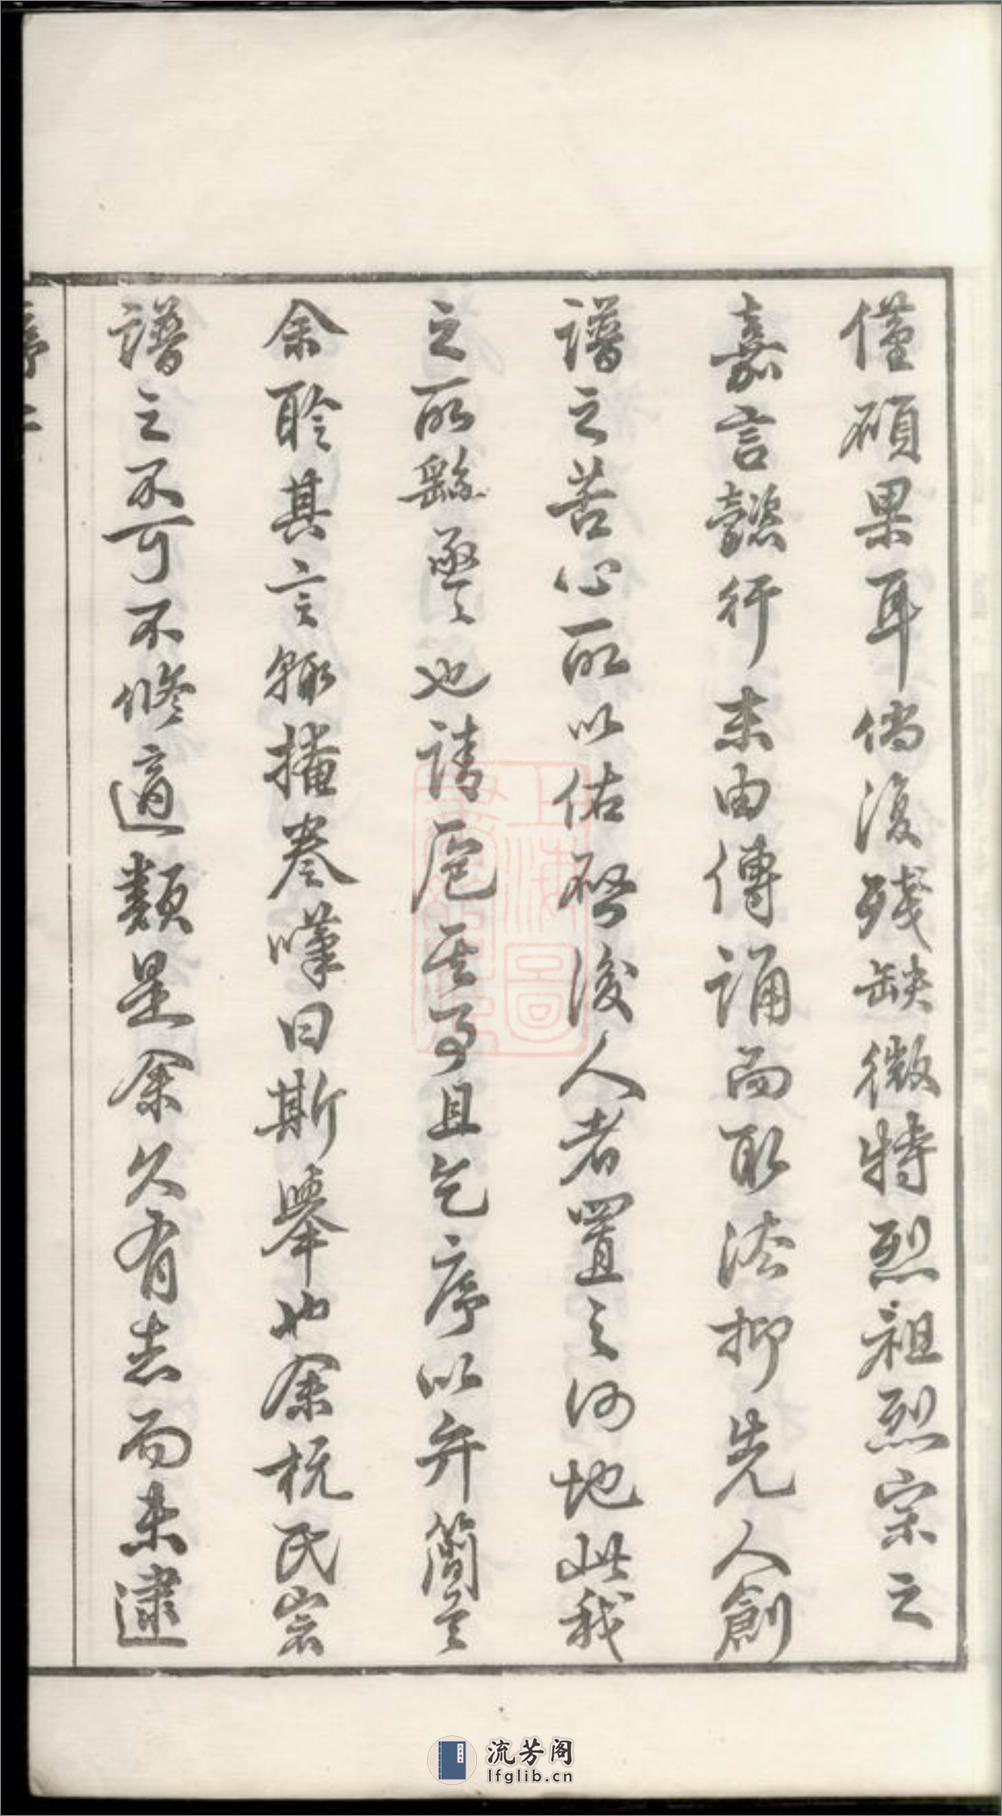 僅碩果耳倘復殘缺微特烈祖烈宗之
嘉言懿行末由傳誦而取法抑先人創
譜之苦心所以佑啓後人者置之何地此我
之所繇亟亟也請扈其事且乞序以弁簡首
余聆其言輒掩卷嘆曰斯舉也余杭民宗
譜之不可不修適類是余久有志而未逮
序 二
上海圖書館藏
流芳阁
lfglib.cn